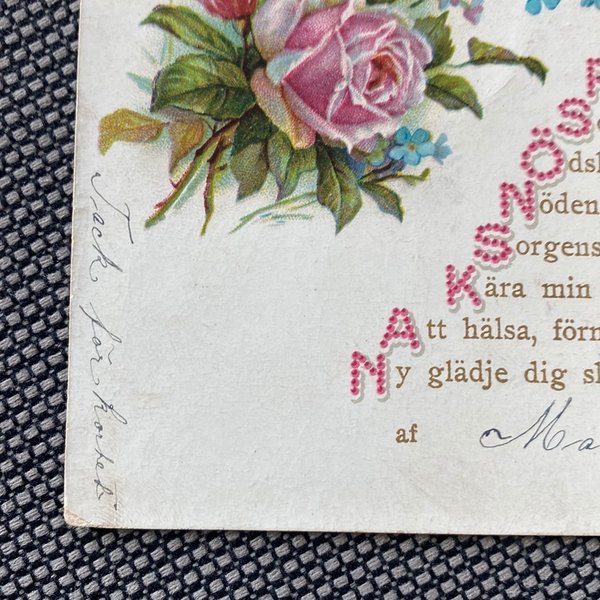 ödsk
Nöden
Sorgens
Kära min
Att hälsa, förn
Ny glädje dig sk
af Ma
Tack för kortet